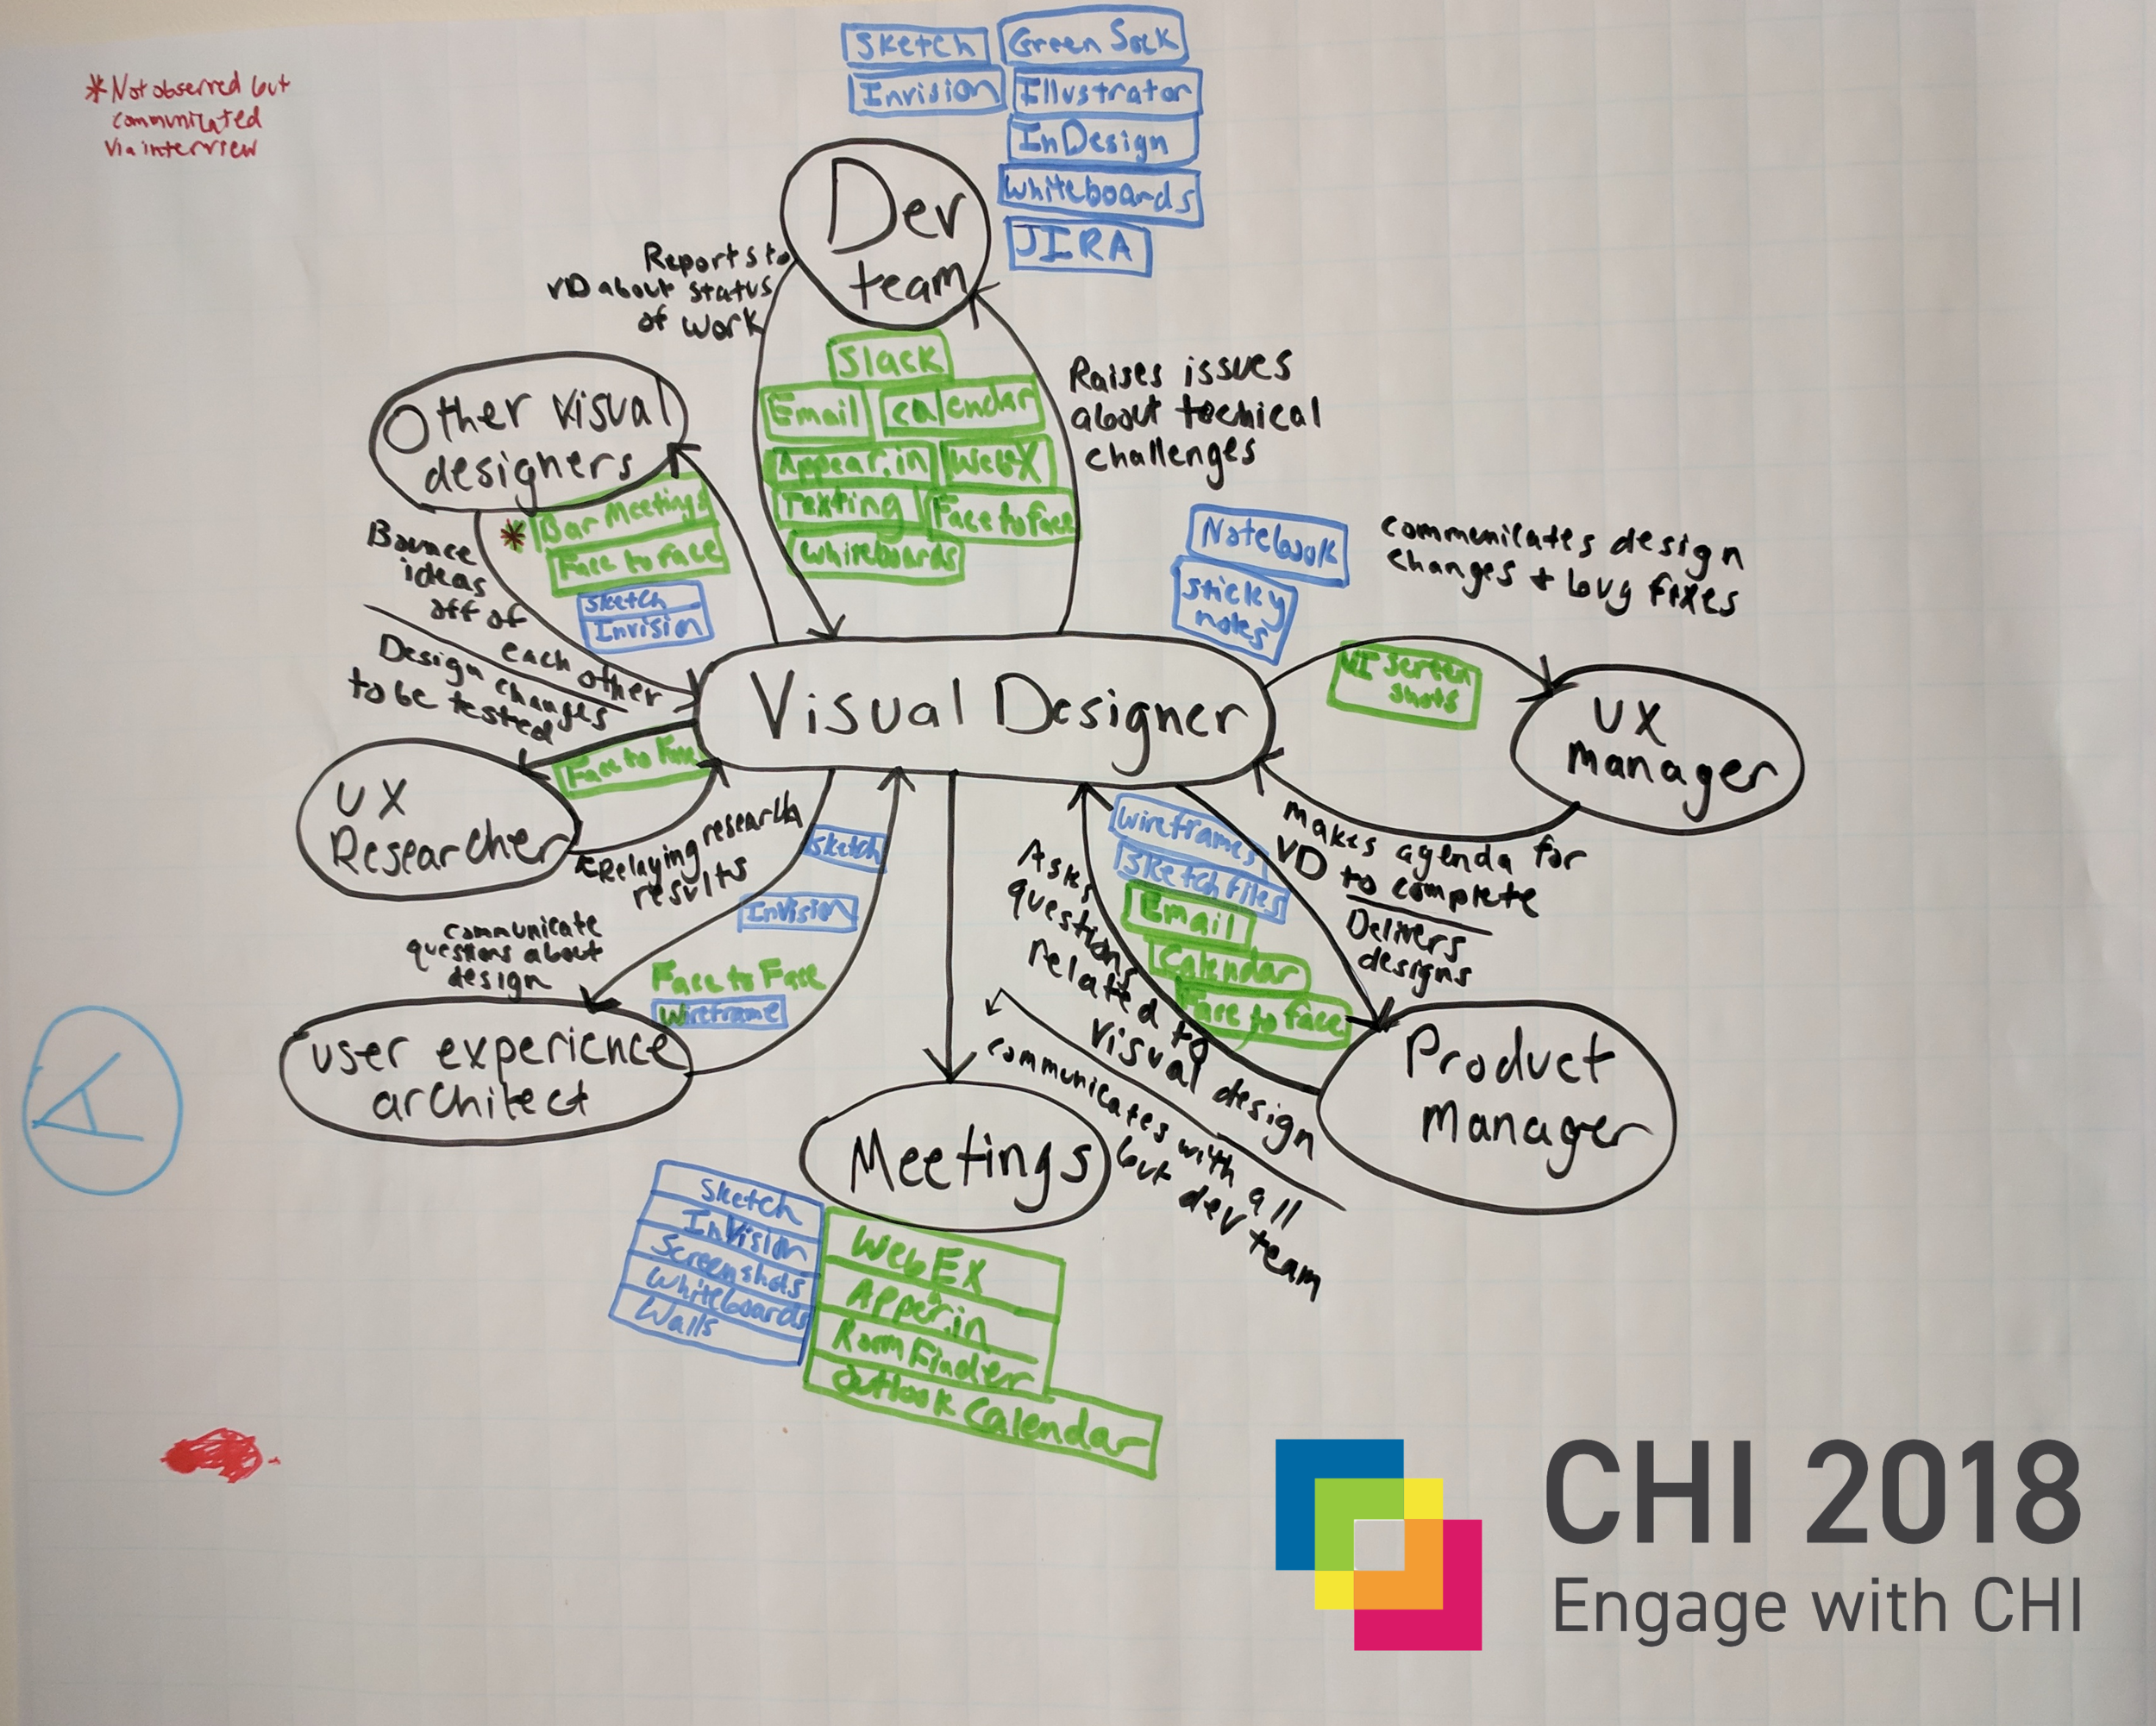 *Not observed but
communicated
via interview
Sketch
Green Sock
Invision
Illustrator
InDesign
Whiteboards
JIRA
Dev
team
Reports to
VD about status
of work
Slack
Email
calendar
Appear.in
WebX
Texting
Face to face
Whiteboards
Raises issues
about techical
challenges
Other visual
designers
* Bar Meetings
Face to face
Sketch
Invision
Bounce
ideas
off of
each other
Design changes
to be tested
Notebook
sticky
notes
communicates design
changes + bug fixes
UI screen
shots
Visual Designer
UX
manager
UX
Researcher
Face to Face
Relaying research
results
makes agenda for
VD to complete
Delivers
designs
communicate
questions about
design
Sketch
Invision
Face to Face
Wireframe
user experience
architect
Wireframes
Sketch files
Email
Calendar
Face to face
Asks
questions
related to
visual design
communicates with all
but dev team
Product
Manager
Meetings
Sketch
InVision
Screenshots
Whiteboards
Walls
WebEX
Appear.in
Room Finder
Outlook Calendar
A
CHI 2018
Engage with CHI